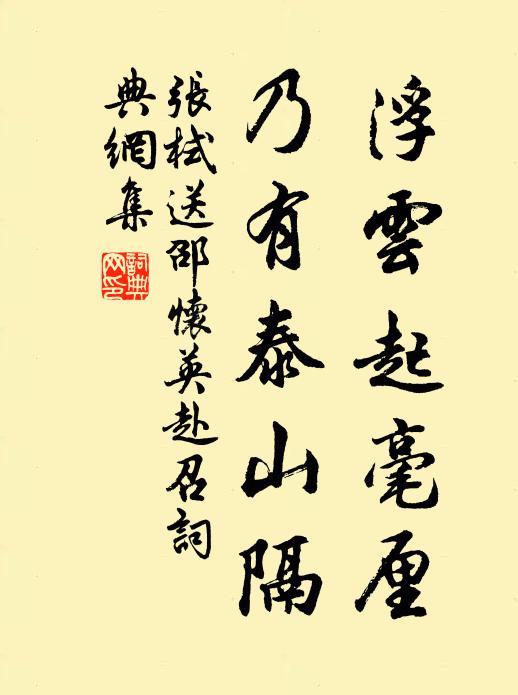 浮雲起毫厘
乃有泰山隔
張栻送邵懷英赴召詞
典網集
詞典
网印